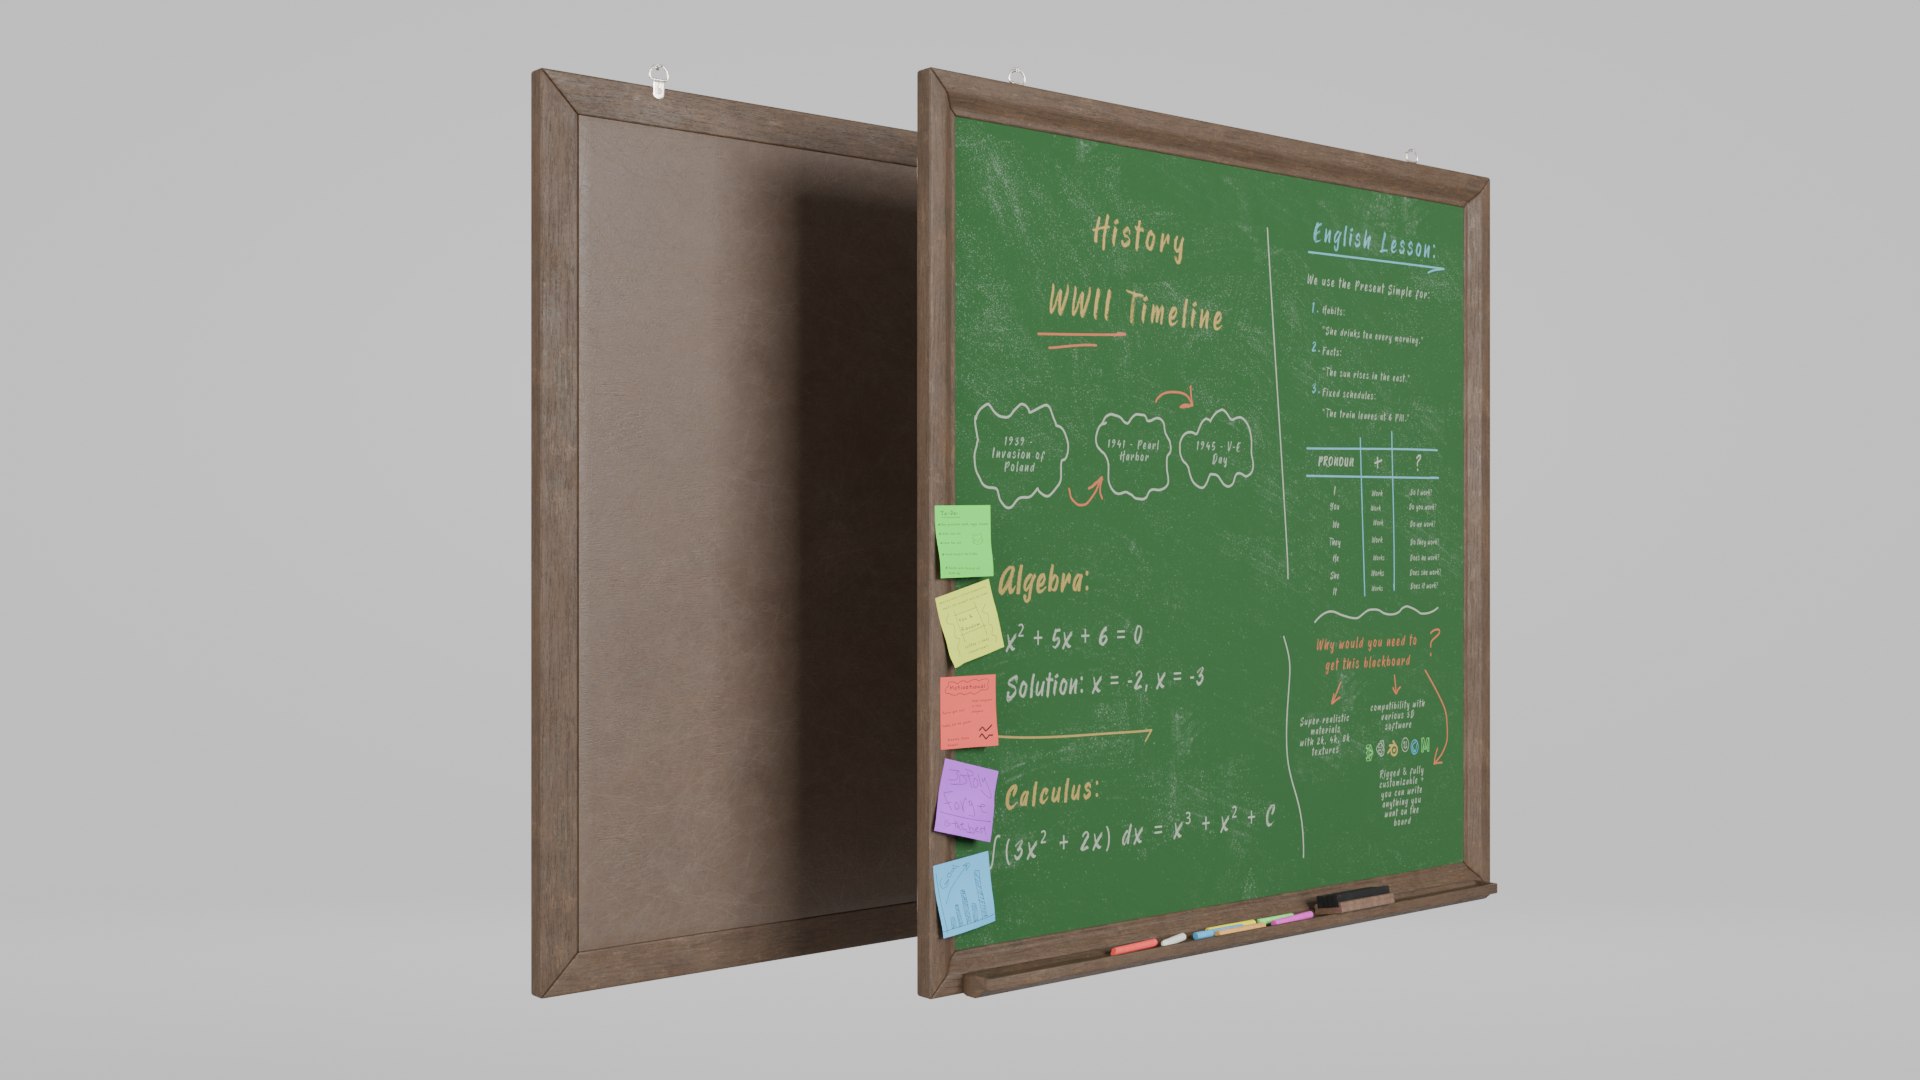 History
WWII Timeline
1939 -
Invasion of
Poland
1941 - Pearl
Harbor
1945 - V-E
Day
Algebra:
x² + 5x + 6 = 0
Solution: x = -2, x = -3
Calculus:
∫(3x² + 2x) dx = x³ + x² + C
English Lesson:
We use the Present Simple for:
1. Habits:
"She drinks tea every morning."
2. Facts:
"The sun rises in the east."
3. Fixed schedules:
"The train leaves at 6 PM."
PRONOUN + ?
I Work Do I work?
You Work Do you work?
We Work Do we work?
They Work Do they work?
He Works Does he work?
She Works Does she work?
It Works Does it work?
Why would you need to
get this blackboard ?
Super-realistic
materials
with 2k, 4k, 8k
textures
compatibility with
various 3D
software
Rigged & fully
customizable
you can write
anything you
want on the
board
To-Do:
Motivational
Forge